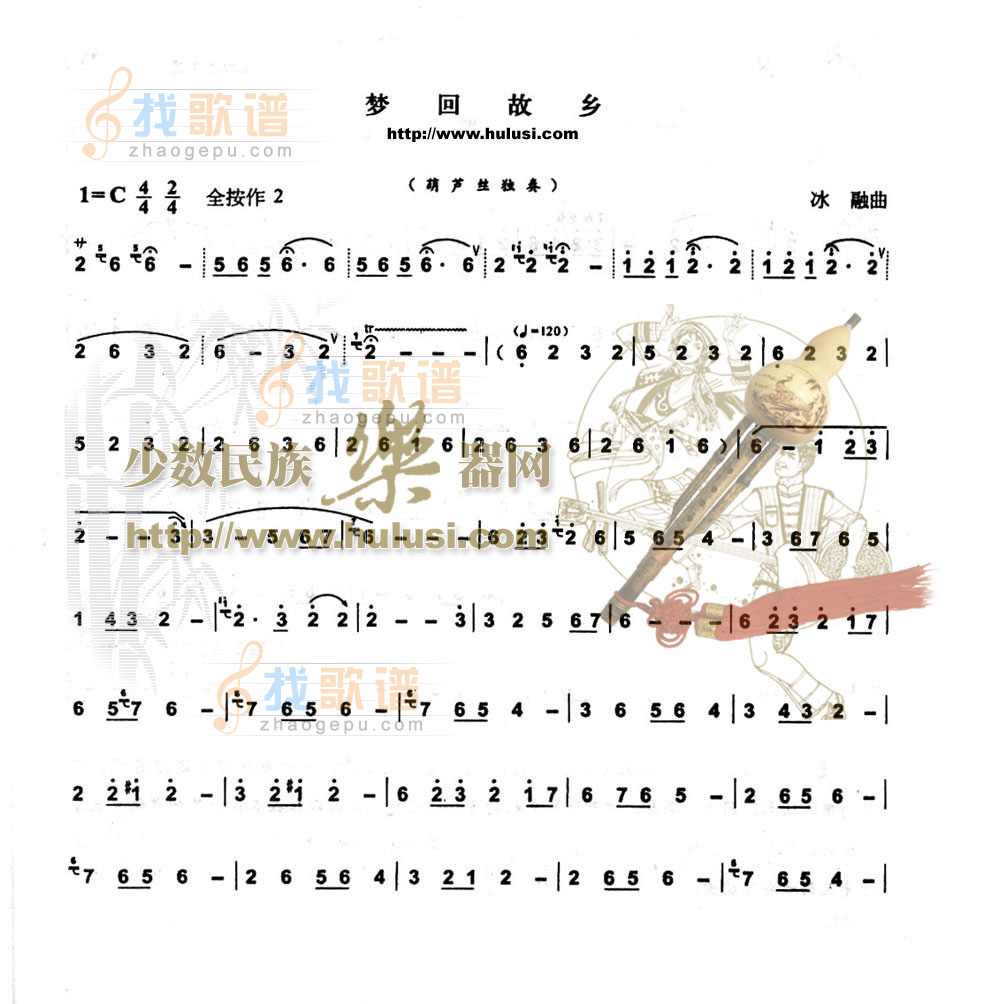 找歌谱
zhaogepu.com
梦 回 故 乡
http://www.hulusi.com
（葫芦丝独奏）
1=C 4/4 2/4 全按作 2
冰 融曲
2 6 6 – 5 6 5 6 · 6 5 6 5 6 · 6 2 2 2 – 1 2 1 2 · 2 1 2 1 2 · 2
2 6 3 2 6 – 3 2 tr 2 – – – | ( (♩=120) 6 2 3 2 | 5 2 3 2 | 6 2 3 2 |
找歌谱
zhaogepu.com
5 2 3 2 | 2 6 3 6 | 2 6 1 6 | 2 6 3 6 | 2 6 1 6 ) | 6 – 1 2 3 |
少数民族樂器网
http://www.hulusi.com
2 – – 3 | 3 – 5 6 7 | 6 – – – | 6 2 3 2 6 | 5 6 5 4 – | 3 6 7 6 5 |
1 4 3 2 – | 2 · 3 2 2 | 2 – – 3 | 3 2 5 6 7 | 6 – – – | 6 2 3 2 1 7 |
找歌谱
zhaogepu.com
6 5 7 6 – | 7 6 5 6 – | 7 6 5 4 – | 3 6 5 6 4 | 3 4 3 2 – |
2 2 #1 2 – | 3 2 #1 2 – | 6 2 . 3 2 1 7 | 6 7 6 5 – | 2 6 5 6 – |
7 6 5 6 – | 2 6 5 6 4 | 3 2 1 2 – | 2 6 5 6 – | 7 6 5 4 – |